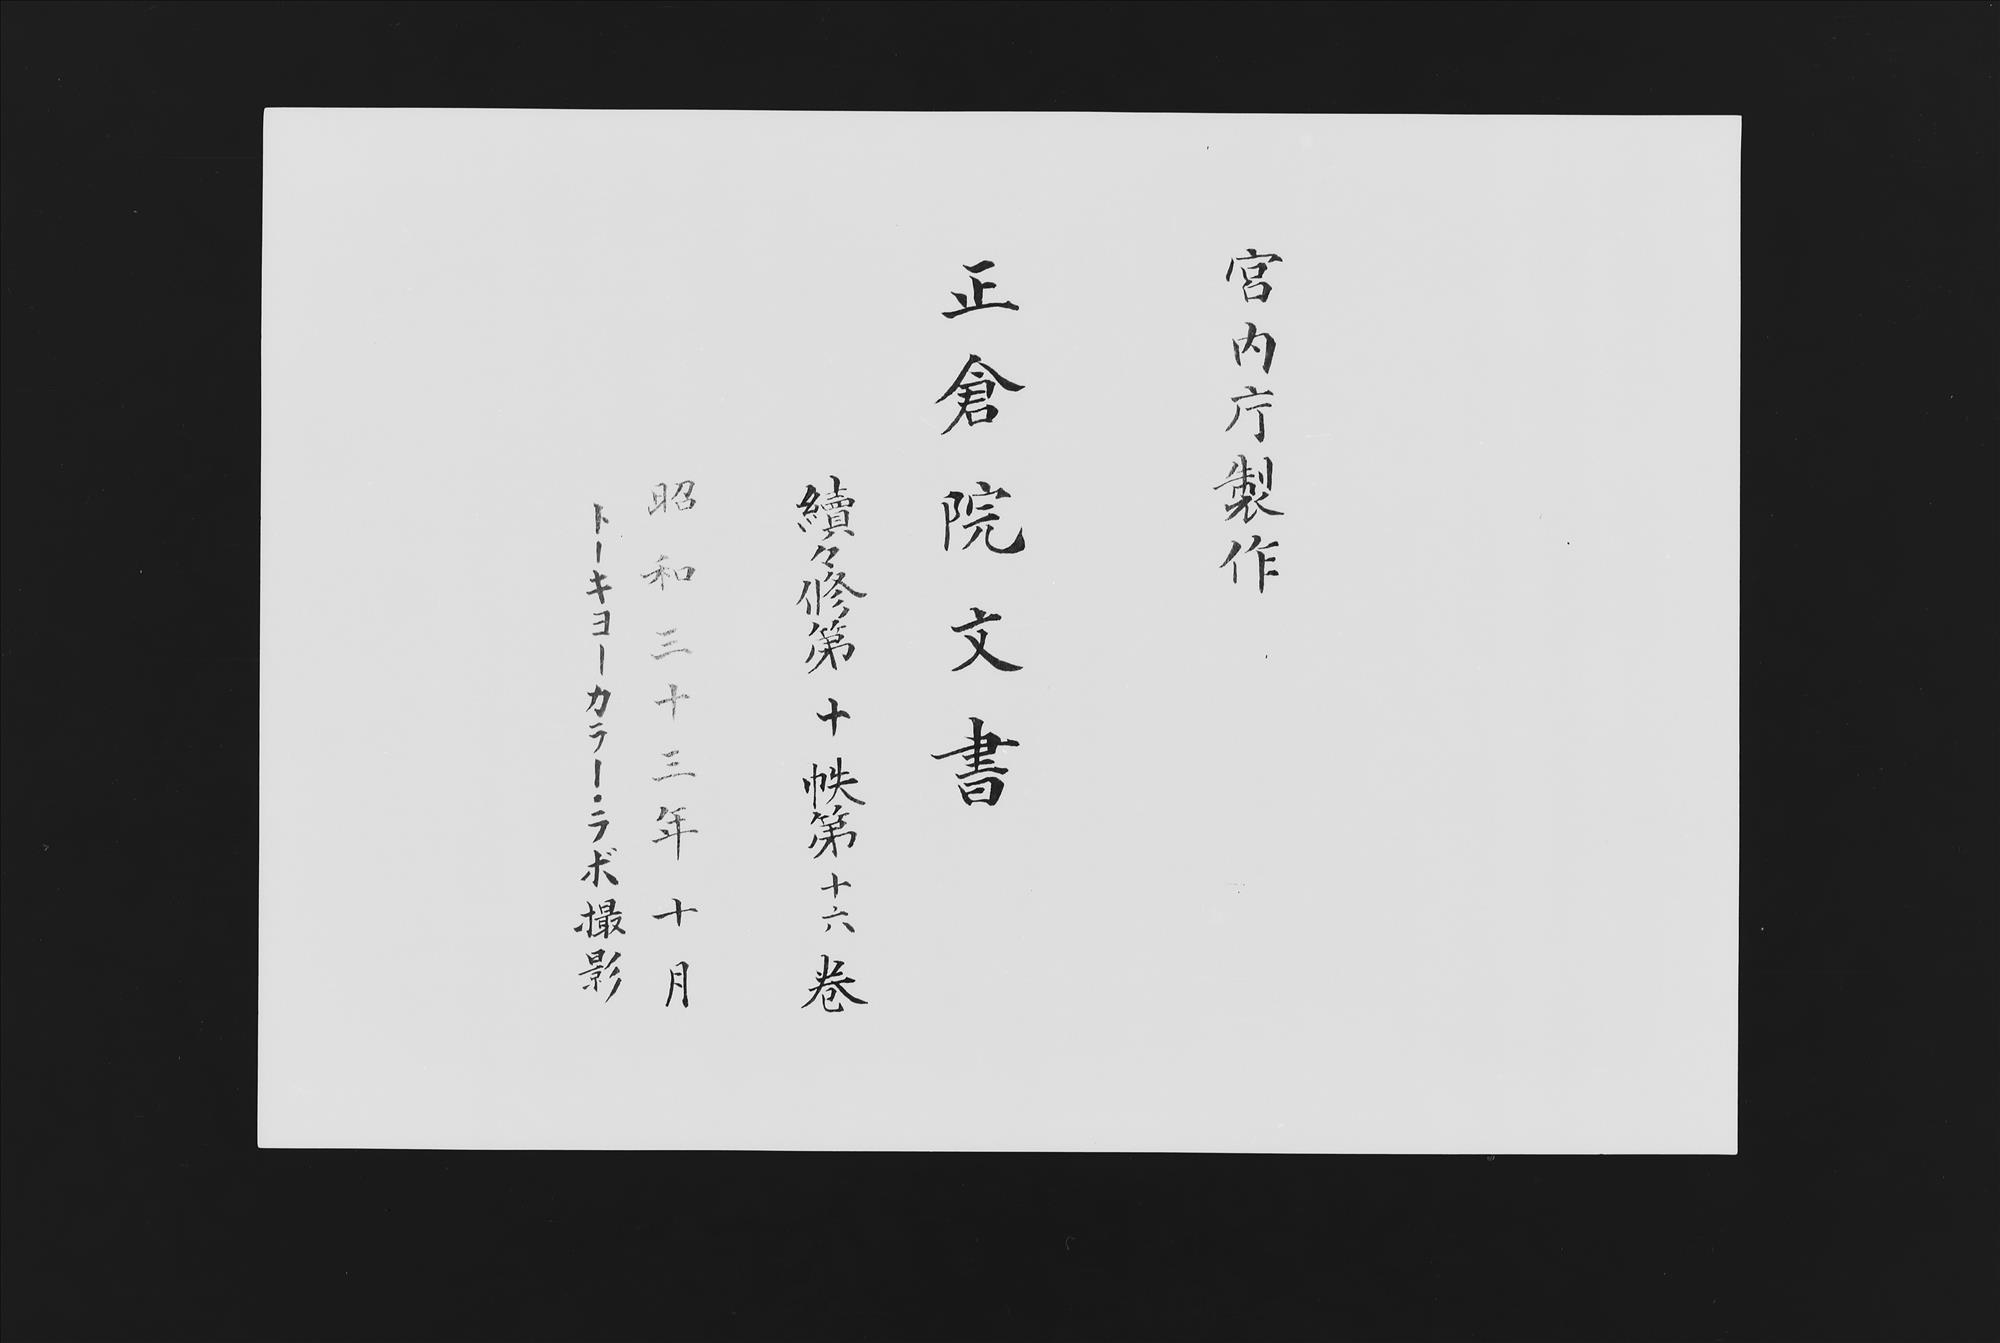 宮内庁製作
正倉院文書
續々修第十帙第十六巻
昭和三十三年十月
トーキヨーカラー・ラボ撮影